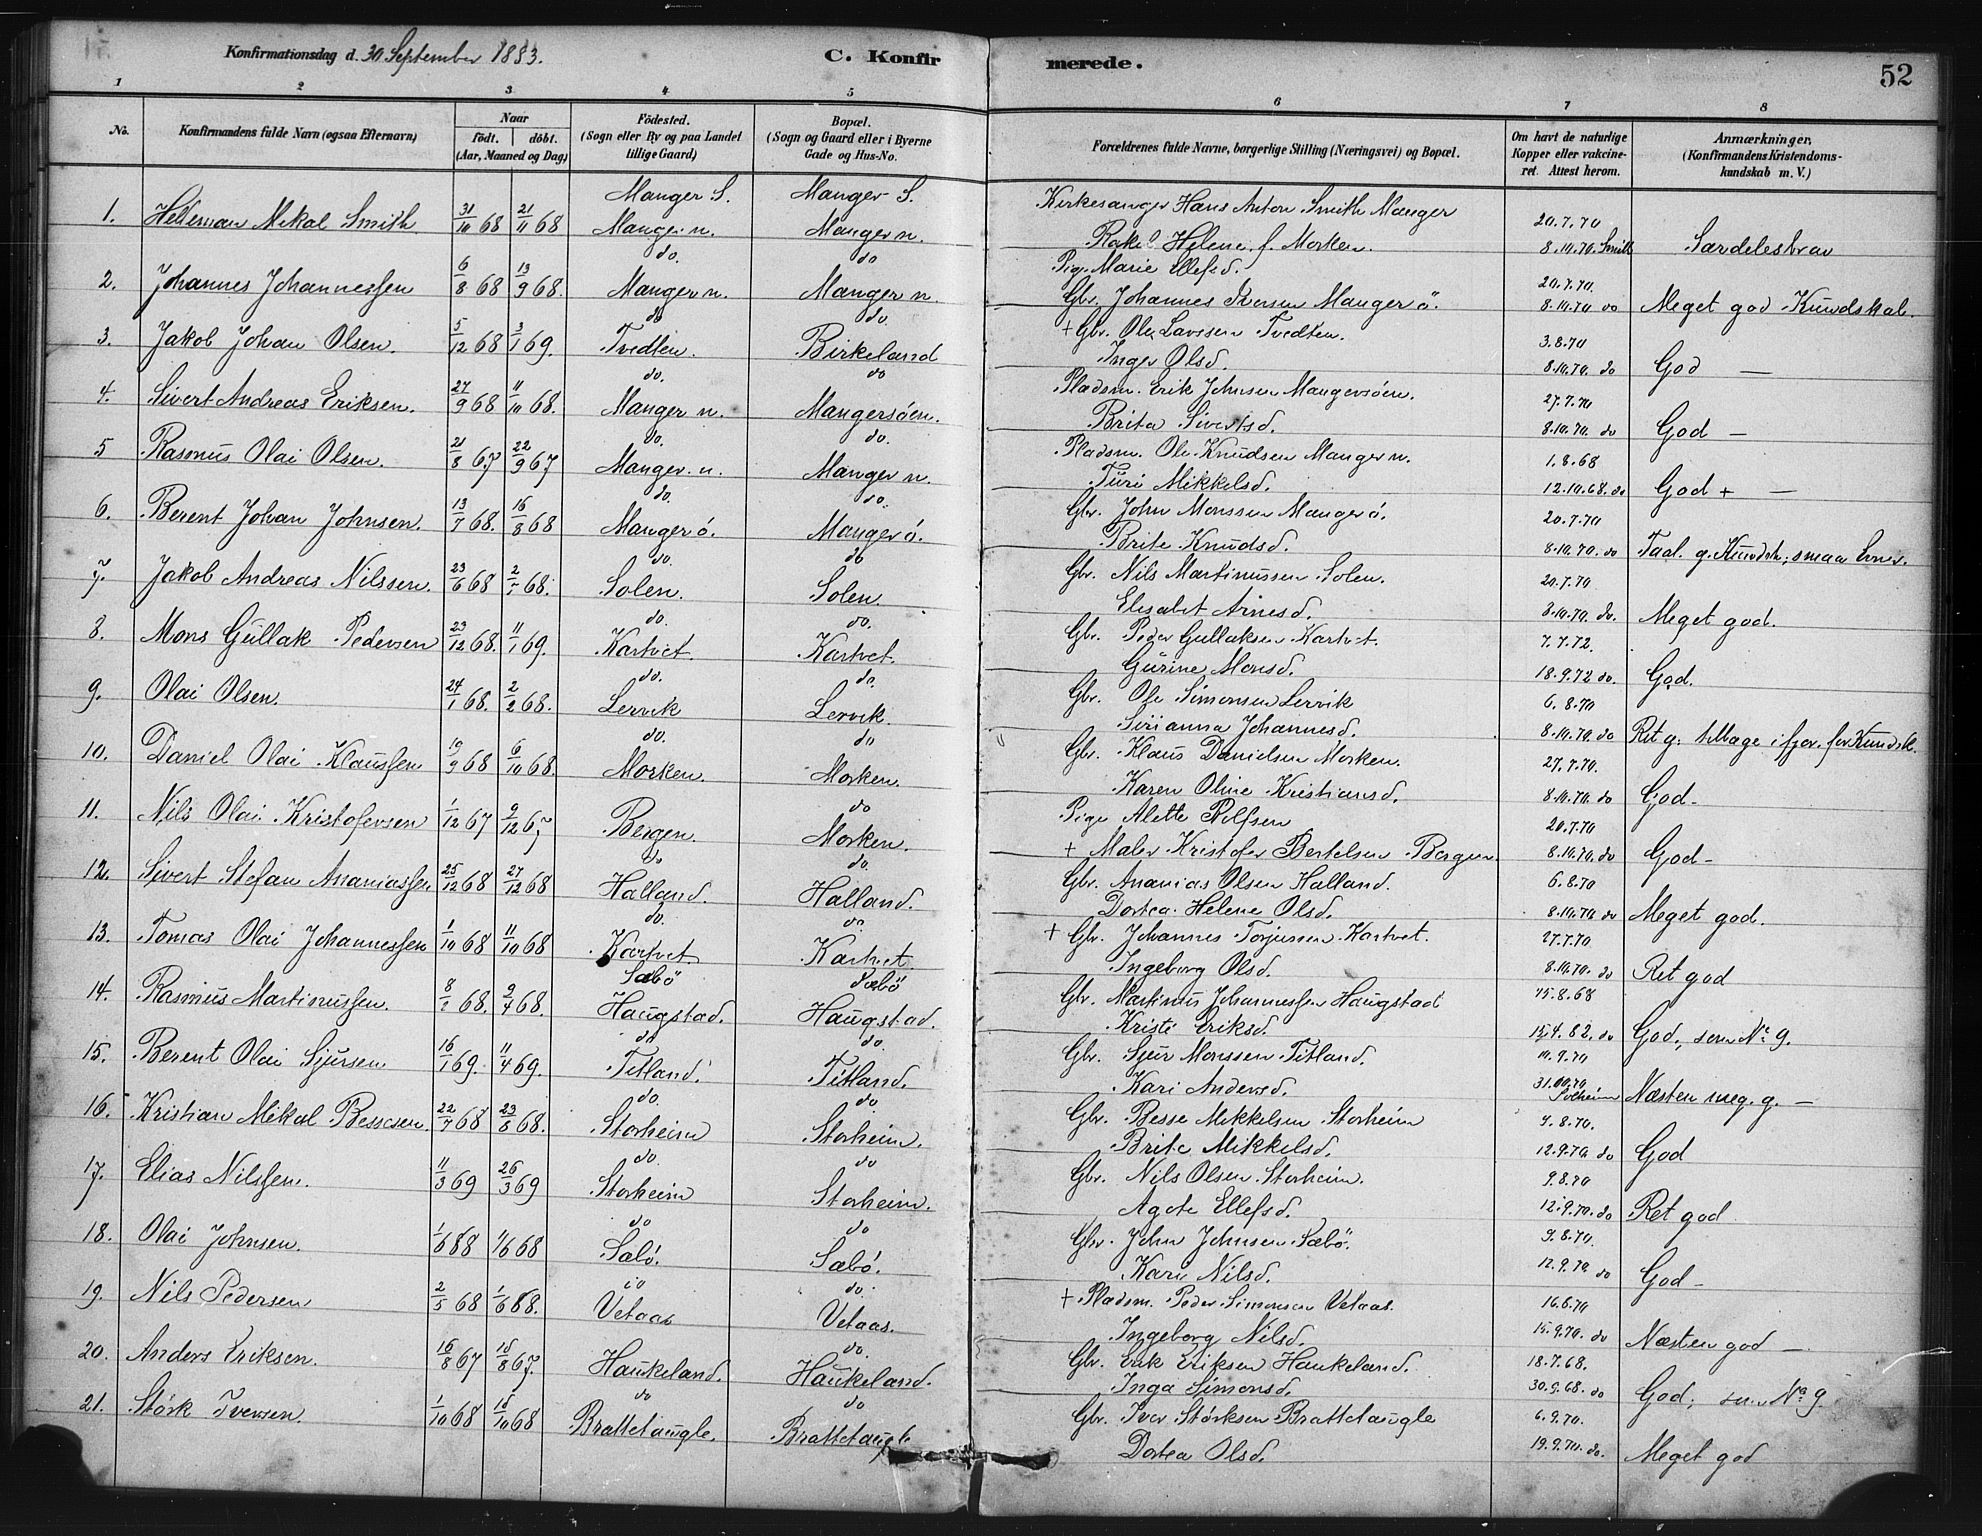 Konfirmationsdag d. 30 September 1883. C. Konfirmerede. 52
1 2 3 4 5 6 7 8
No. Konfirmandens fulde Navn (ogsaa Efternavn) Naar født. døbt. (Aar, Maaned og Dag) Fødested. (Sogn eller By og paa Landet tillige Gaard) Bopæl. (Sogn og Gaard eller i Byerne Gade og Hus-No. Forældrenes fulde Navne, borgerlige Stilling (Næringsvei) og Bopæl. Om havt de naturlige Kopper eller vakcineret. Attest herom. Anmærkninger, (Konfirmandens Kristendomskundskab m. V.)
Manger S. Manger S. Kirkesanger Hans Anton Smith Manger 20.7.70
1. Mikal Smith 31/10 68 21/11 68 Manger n. Manger n. Rakel Helene f. Morken. 8.10.70 Smith Særdelesbrav
do. do Pige Marie Ellefsd. 20.7.70.
2. Johannes Johannessen 6/8 68 13/9 68. Manger n. Manger n. Gbr. Johannes Iversen Manger ö. 8.10.70 do Meget god Kundskab.
do do + Gbr. Ole Larssen Tvedten. 3.8.70
3. Jakob Johan Olsen. 5/12 68 3/1 69. Tvedten. Birkeland Inger Olsd. 8.10.70. do God —
do. do Pladsm. Erik Johnsen Mangersøen. 27.7.70
4. Sivert Andreas Eriksen. 27/9 68 11/10 68. Manger n. Mangersøen. Brita Sivertsd. 8.10.70. do God —
do. do. Pladsm. Ole Knudsen Manger n. 1.8.68
5 Rasmus Olai Olsen. 21/8 67 22/9 67 Manger n. Manger n. Turi Mikkelsd. 12.10.68. do God + —
do. do. Gbr. John Monssen Manger ö. 20.7.70
6. Berent Johan Johnsen. 13/7 68. 16/8 68 Manger ö. Manger ö. Brite Knudsd. 8.10.70. do Taal. g. Kundsk; smaa Evner.
do. do Gbr. Nils Martinussen Solen. 20.7.70
7. Jakob Andreas Nilssen. 23/6 68 68. Solen. Solen. Elisabet Arnesd. 8.10.70. do. Meget god.
do. do. Gbr. Peder Gullaksen Kartvet. 7.7.72.
8. Mons Gullak Pedersen 23/12 68. 11/1 69. Kartvet. Kartvet. Gurine Monsd. 18.9.72 do. God.
do. do. Gbr. Ole Simonsen Lervik 6.8.70
9. Olai Olsen. 24/1 68. 2/2 68. Lervik Lervik. Sirianna Johannesd. 8.10.70. do Ret g. tilbage ifjor. for Kundsk.
do. do Gbr. Klaus Danielsen Morken. 27.7.70.
10. Daniel Olai Klaussen 19/9 68 6/10 68. Morken. Morken. Karen Oline Kristiansd. 8.10.70. do God-
do Pige Alette Rolfsen 20.7.70
11. Nils Olai Kristofersen 1/12 67 9/12 67 Bergen. Morken. + Maler Kristofer Bertelsen Bergen. 8.10.70. do God-
do do. Gbr. Ananias Olsen Halland. 6.8.70
12. Sivert Stefan Ananiassen 25/12 68 27/12 68 Halland. Halland. Dortea Helene Olsd. 8.10.70 do Meget god.
do. do. + Gbr. Johannes Torjussen Kartvet. 27.7.70
13. Tomas Olai Johannessen 1/10 68 11/10 68 Kartvet Kartvet. Ingeborg Olsd. 8.10.70. do Ret god
Sæbö Sæbö Gbr. Martinus Johannessen Haugstad 15.8.68
14. Rasmus Martinussen. 68. 68. Haugstad. Haugstad. Kristi Eriksd. 15.4.82. do God, som No 9.
do do. Gbr. Sjur Monssen Titland. 10.9.70
15. Berent Olai Sjursen 16/1 69. 11/4 69. Titland. Titland. Kari Andersd. 31.10.70 Solheim Næsten meg. g. —
do. do. Gbr. Besse Mikkelsen Storheim 4.8.70.
16. Kristian Mikal Bessesen. 22/7 68 23/8 68. Storheim Storheim. Brite Mikkelsd. 12.9.70 do God
do. do Gbr. Nils Olsen Storheim. 9.8.70
17. Elias Nilssen. 11/3 69 26/3 69 Storheim Storheim. Agote Ellefsd. 12.9.70. do Ret god
do do Gbr. John Johnsen Sæbö. 9.8.70.
18. Olai Johnsen. 1/6 68 1/6 68 Sæbö. Sæbö. Kari Nilsd. 12.9.70 do God-
do do. + Pladsm. Peder Simonsen Vetaas. 16.8.70
19. Nils Pedersen 2/5 68 1/6 68. Vetaas Vetaas. Ingeborg Nilsd. 15.9.70. do Næsten god —
do. Gbr. Erik Eriksen Haukeland. 18.7.68.
20. Anders Eriksen. 16/8 67 18/8 67. Haukeland. Haukeland. Inga Simonsd. 30.9.68. do God; som No 9.
do do Gbr. Iver Størksen Brattetaugle 6.9.70.
21. Størk Iversen. 1/10 68 18/10 68 Brattetaugle. Brattetaugle Dortea Olsd. 19.9.70. do. Meget god